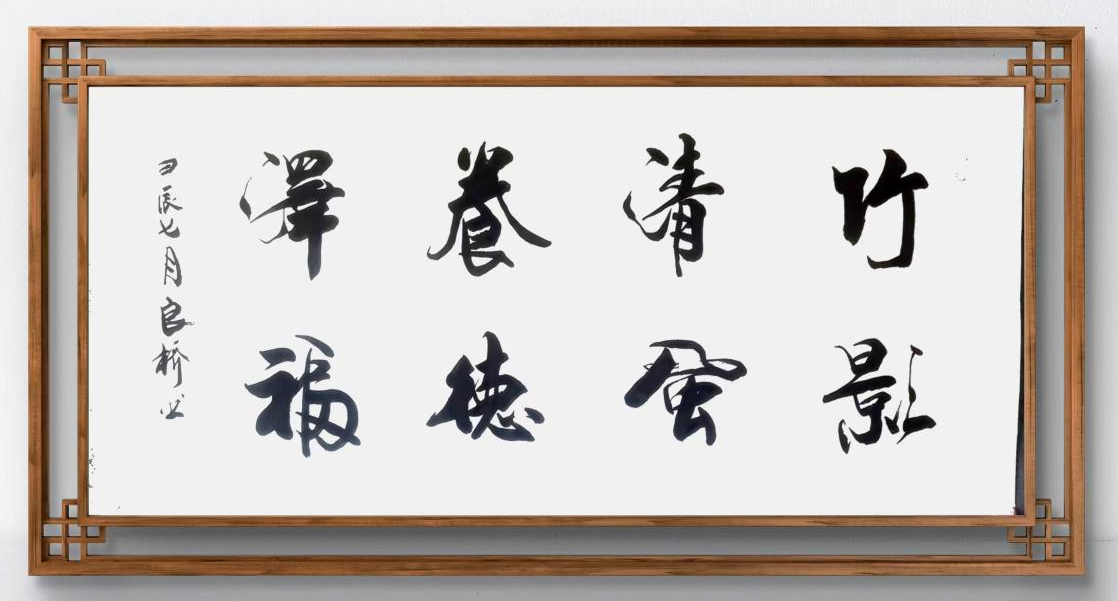 竹影
清風
養德
澤福
甲辰七月良橋书